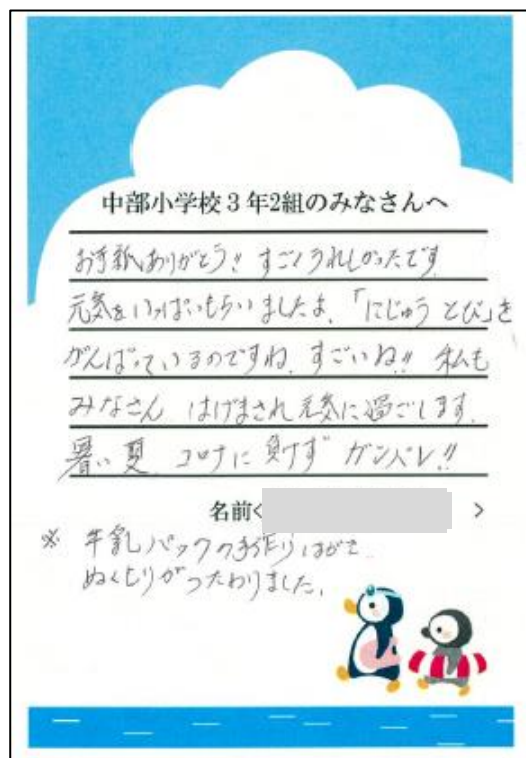 中部小学校3年2組のみなさんへ
お手紙ありがとう!! すごくうれしかったです
元気をいっぱいもらいましたよ、「にじゅうとび」を
がんばっているのですね、すごいね!! 私も
みなさん はげまされ元気に過ごします、
暑い夏 コロナに負けず ガンバレ!!
名前< >
※ 牛乳パックの手作りはがき
ぬくもりがつたわりました、